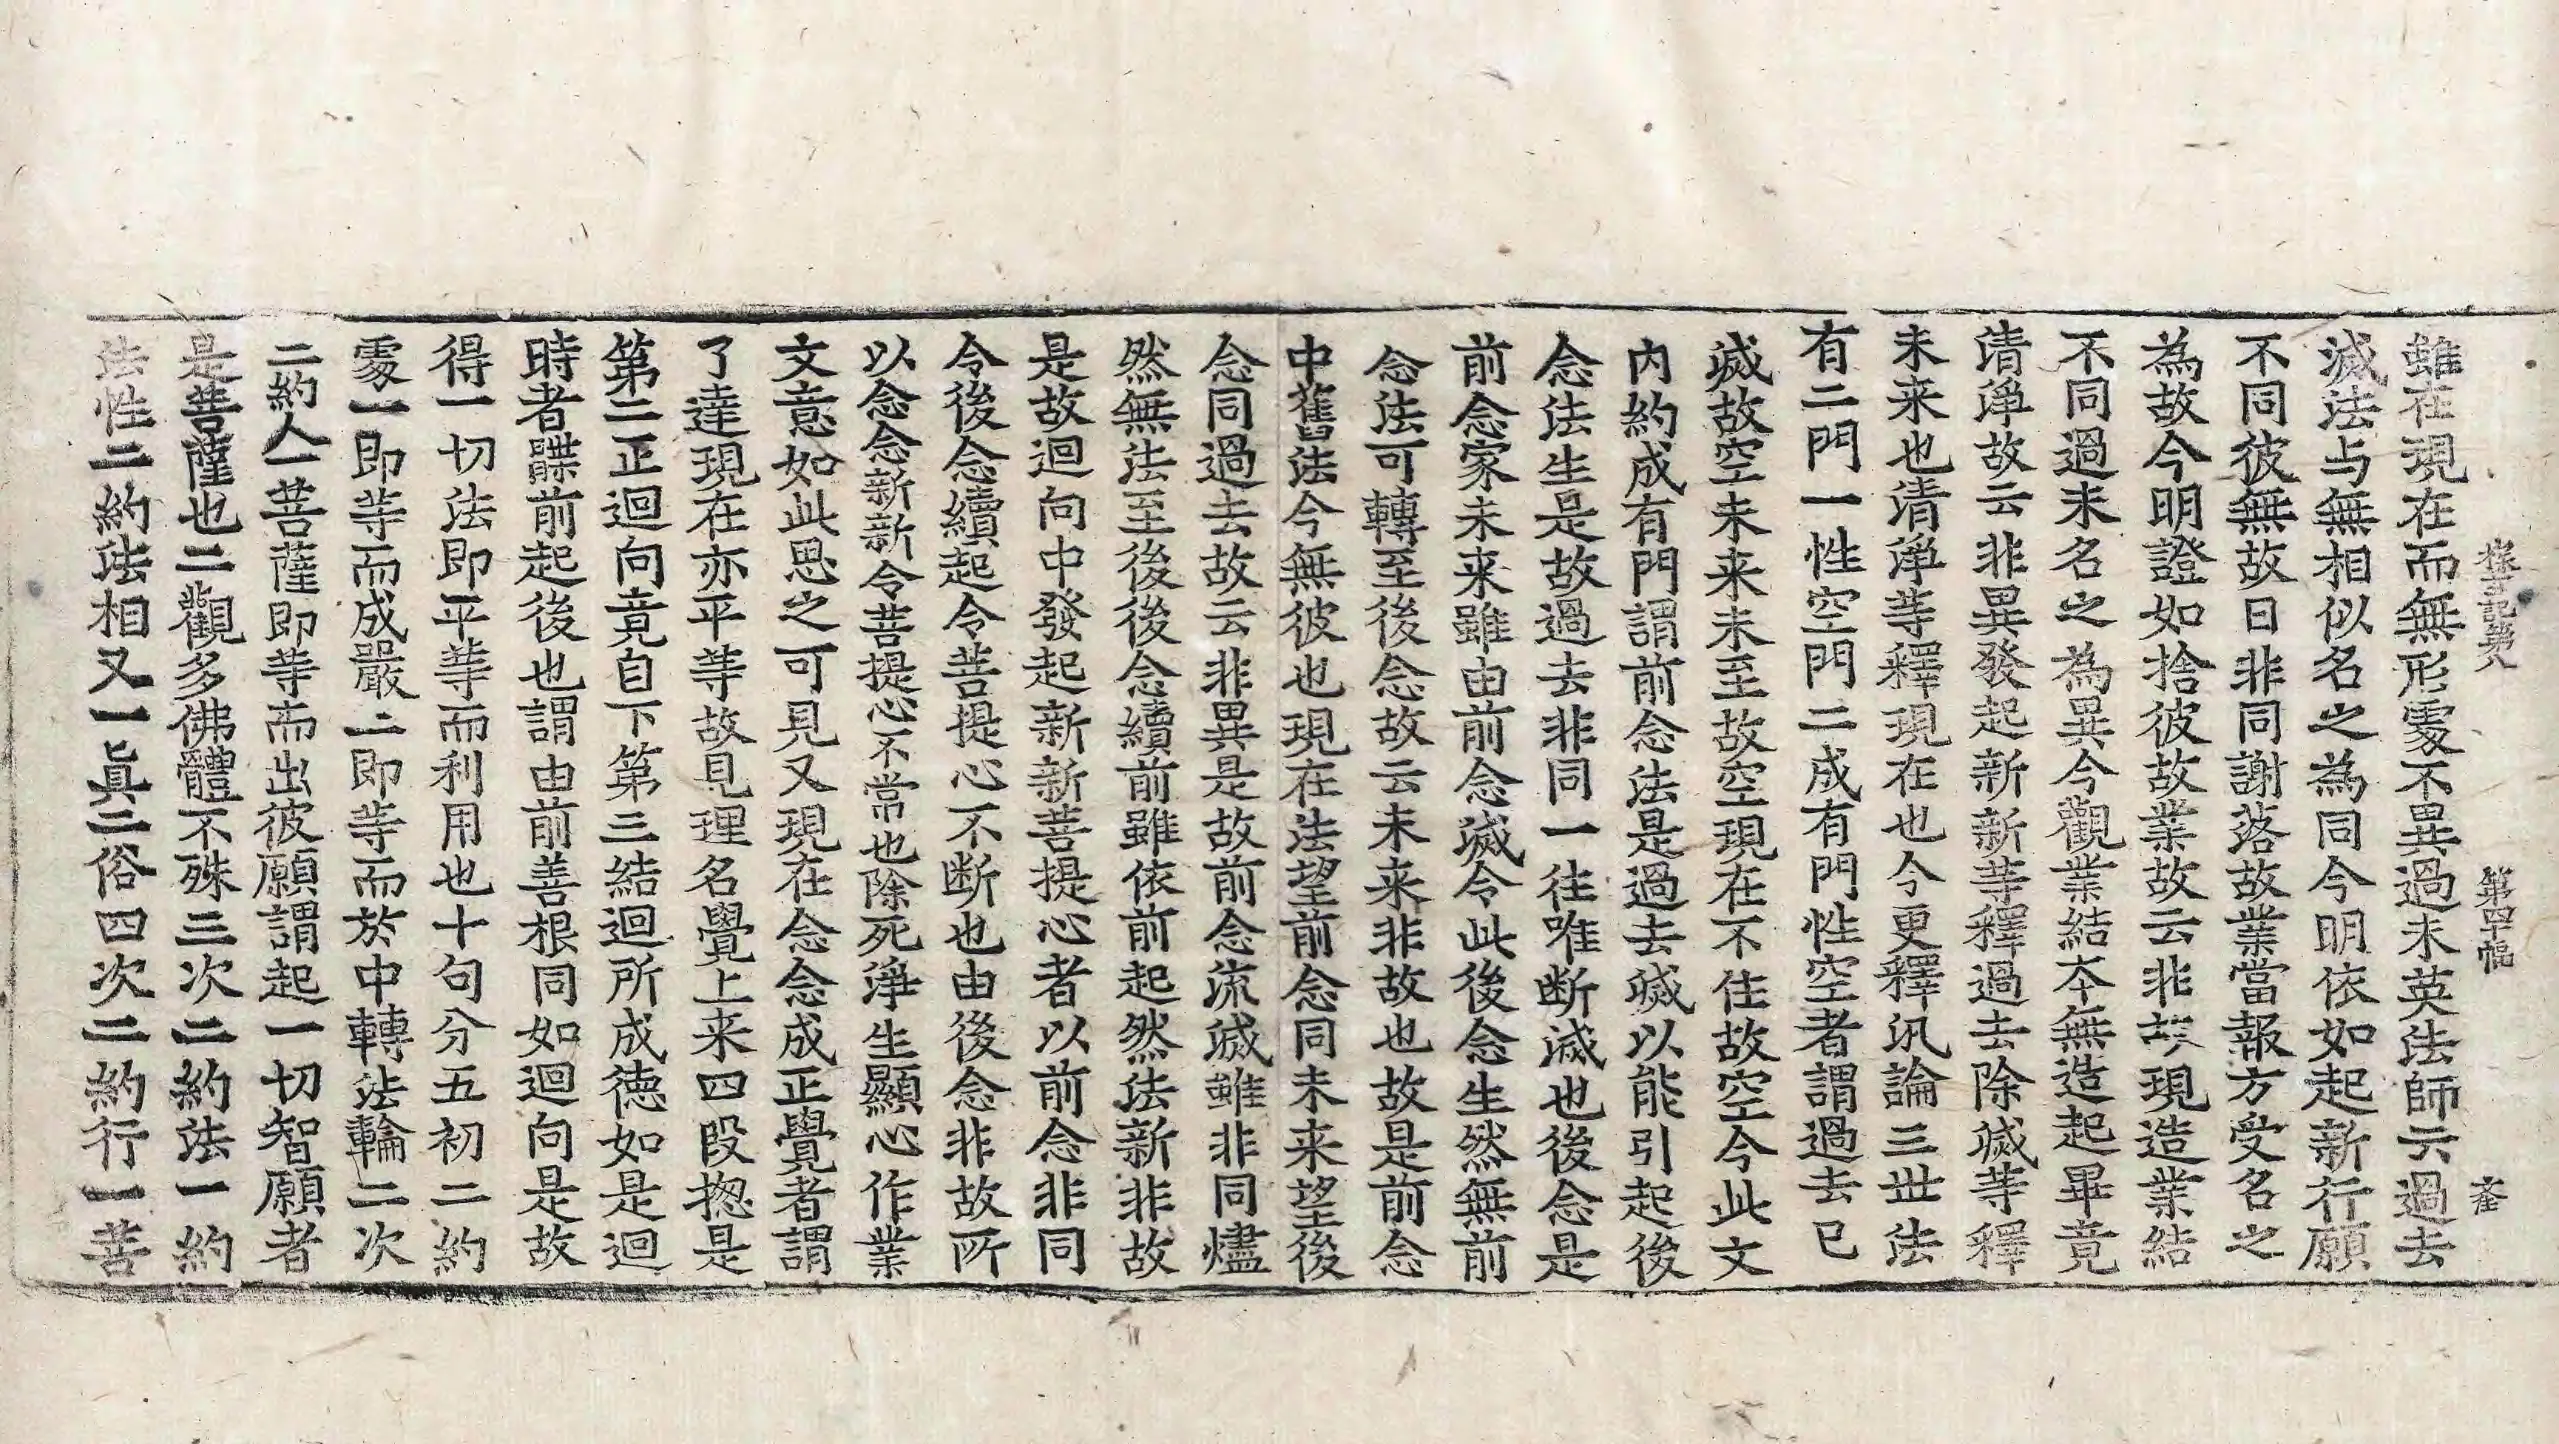 探玄記第八 第四十幅 㘴
雖在現在而無形䖏不異過未英法師云過去
滅法与無相似名之為同今明依如起新行願
不同彼無故曰非同謝落故業當報方受名之
為故今明證如捨彼故業故云非故現造業結
不同過未名之為異今觀業結本無造起畢竟
清淨故云非異發起新新等釋過去除滅等釋
未来也清淨等釋現在也今更釋汎論三世法
有二門一性空門二成有門性空者謂過去已
滅故空未来未至故空現在不住故空今此文
內約成有門謂前念法是過去滅以能引起後
念法生是故過去非同一往唯断滅也後念是
前念家未来雖由前念滅令此後念生然無前
念法可轉至後念故云未来非故也故是前念
中舊法今無彼也現在法望前念同未来望後
念同過去故云非異是故前念流滅雖非同燼
然無法至後後念續前雖依前起然法新非故
是故迴向中發起新新菩提心者以前念非同
令後念續起令菩提心不断也由後念非故所
以念念新新令菩提心不常也除死淨生顯心作業
文意如此思之可見又現在念念成正覺者謂
了達現在亦平等故見理名覺上来四段揔是
第二正迴向竟自下第三結迴所成德如是迴
時者牒前起後也謂由前善根同如迴向是故
得一切法即平等而利用也十句分五初二約
䖏一即等而成嚴二即等而於中轉法輪二次
二約人一菩薩即等而出彼願謂起一切智願者
是菩薩也二觀多佛體不殊三次二約法一約
法性二約法相又一真二俗四次二約行一善